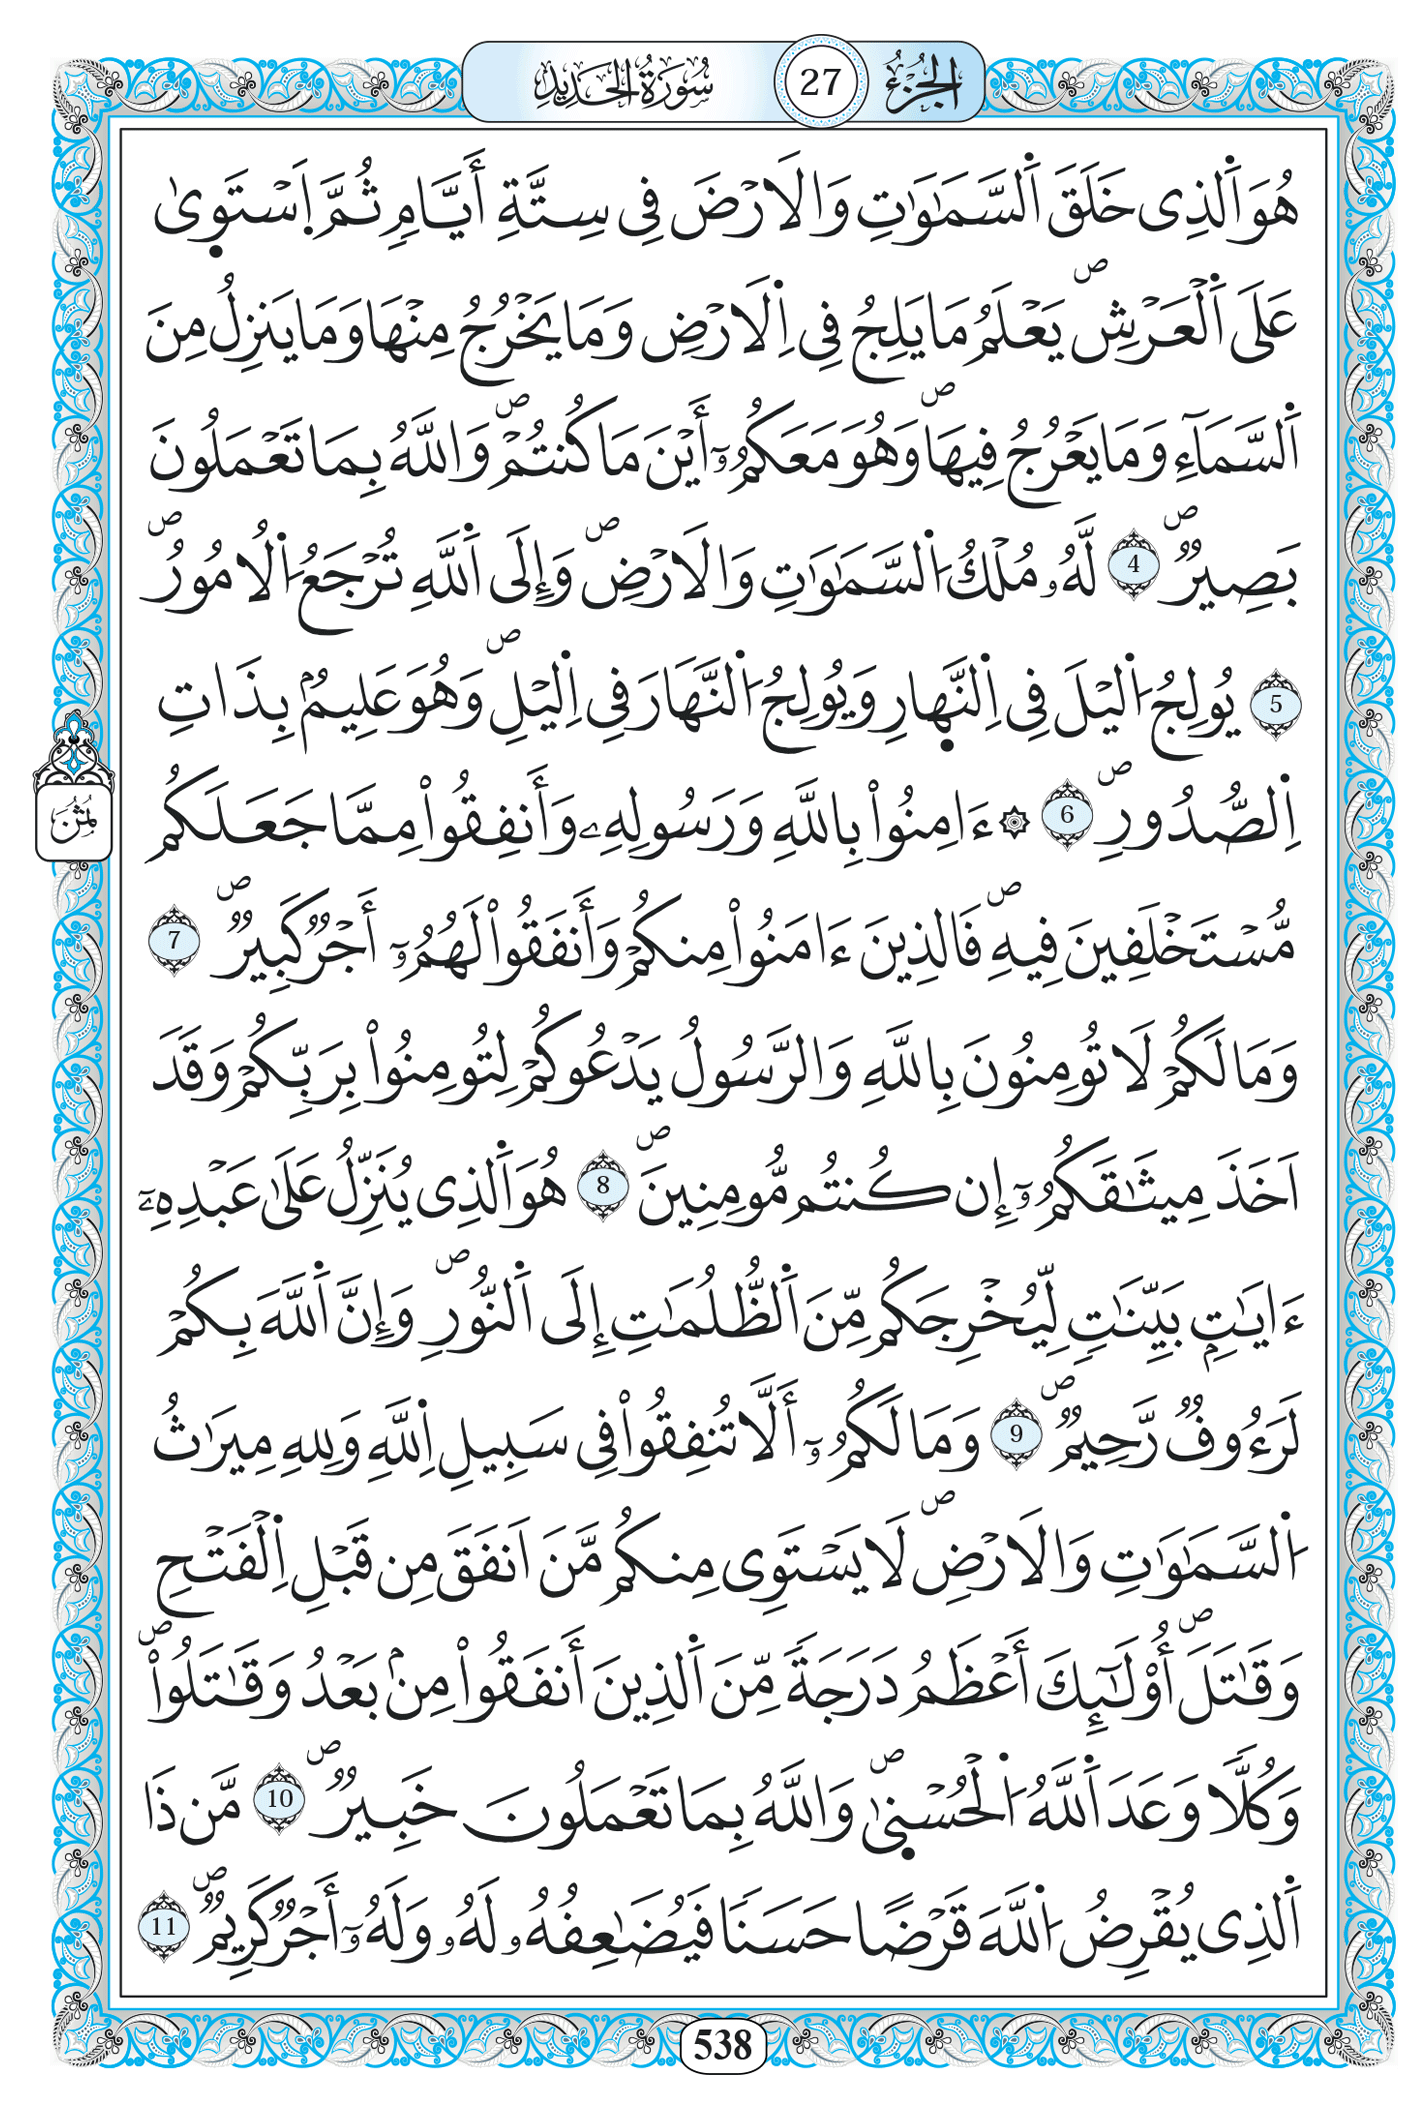 الجُزْءُ 27 سُورَةُ الحَدِيدِ
هُوَ اَ۬لذِے خَلَقَ اَ۬لسَّمَٰوَٰتِ وَالَارْضَ فِے سِتَّةِ أَيَّامٖ ثُمَّ اَ۪سْتَو۪يٰ
عَلَي اَ۬لْعَرْشِۖ يَعْلَمُ مَا يَلِجُ فِے اِ۬لَارْضِ وَمَا يَخْرُجُ مِنْهَا وَمَا يَنزِلُ مِنَ
اَ۬لسَّمَآءِ وَمَا يَعْرُجُ فِيهَاۖ وَهُوَ مَعَكُمُۥٓ أَيْنَ مَا كُنتُمْۖ وَاللَّهُ بِمَا تَعْمَلُونَ
بَصِيرٞۖ 4 لَّهُۥ مُلْكُ اُ۬لسَّمَٰوَٰتِ وَالَارْضِۖ وَإِلَي اَ۬للَّهِ تُرْجَعُ اُ۬لُامُورُۖ
5 يُولِجُ اُ۬ليْلَ فِے اِ۬لنَّه۪ارِ وَيُولِجُ اُ۬لنَّهَارَ فِے اِ۬ليْلِۖ وَهُوَ عَلِيمُۢ بِذَاتِ
اِ۬لصُّدُورِۖ 6 ۞ ءَامِنُواْ بِاللَّهِ وَرَسُولِهِۦ وَأَنفِقُواْ مِمَّا جَعَلَكُم
مُّسْتَخْلَفِينَ فِيهِۖ فَالذِينَ ءَامَنُواْ مِنكُمْ وَأَنفَقُواْ لَهُمُۥٓ أَجْرٞ كَبِيرٞۖ 7
وَمَا لَكُمْ لَا تُومِنُونَ بِاللَّهِ وَالرَّسُولُ يَدْعُوكُمْ لِتُومِنُواْ بِرَبِّكُمْ وَقَدَ
اَخَذَ مِيثَٰقَكُمُۥٓ إِن كُنتُم مُّومِنِينَۖ 8 هُوَ اَ۬لذِے يُنَزِّلُ عَلَيٰ عَبْدِهِۦٓ
ءَايَٰتِۭ بَيِّنَٰتٖ لِّيُخْرِجَكُم مِّنَ اَ۬لظُّلُمَٰتِ إِلَي اَ۬لنُّورِۖ وَإِنَّ اَ۬للَّهَ بِكُمْ
لَرَءُوفٞ رَّحِيمٞۖ 9 وَمَا لَكُمُۥٓ أَلَّا تُنفِقُواْ فِے سَبِيلِ اِ۬للَّهِ وَلِلهِ مِيرَٰثُ
اُ۬لسَّمَٰوَٰتِ وَالَارْضِۖ لَا يَسْتَوِے مِنكُم مَّنَ اَنفَقَ مِن قَبْلِ اِ۬لْفَتْحِ
وَقَٰتَلَۖ أُوْلَٰٓئِكَ أَعْظَمُ دَرَجَةٗ مِّنَ اَ۬لذِينَ أَنفَقُواْ مِنۢ بَعْدُ وَقَٰتَلُواْۖ
وَكُلّٗا وَعَدَ اَ۬للَّهُ اُ۬لْحُسْن۪يٰۖ وَاللَّهُ بِمَا تَعْمَلُونَ خَبِيرٞۖ 10 مَّن ذَا
اَ۬لذِے يُقْرِضُ اُ۬للَّهَ قَرْضًا حَسَنٗا فَيُضَٰعِفُهُۥ لَهُۥ وَلَهُۥٓ أَجْرٞ كَرِيمٞۖ 11
ثُمُن
538